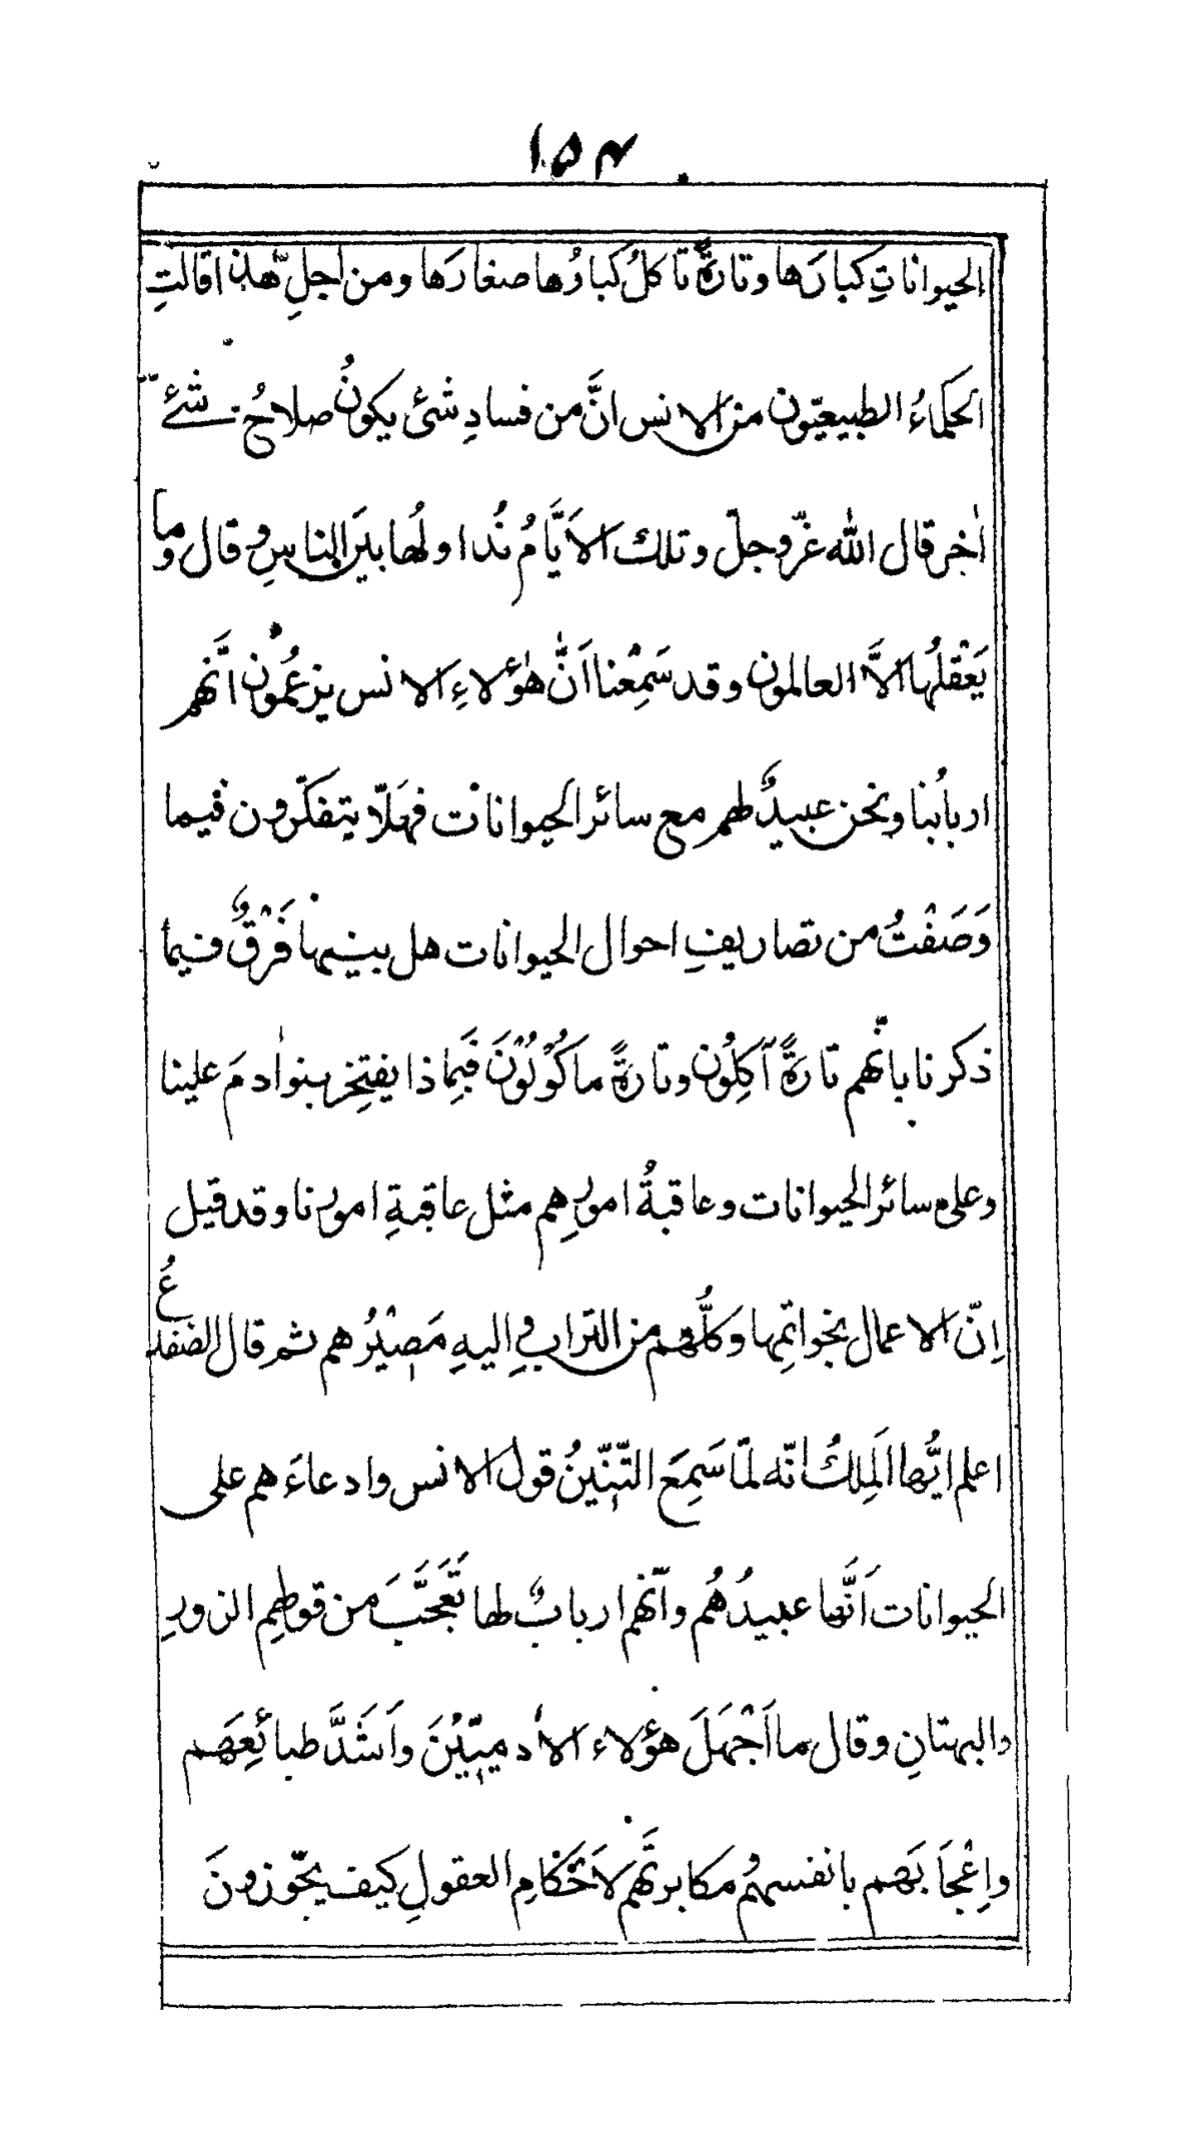 ۱۵۴
الحيواناتِ كبارَها وتارةً تاكلُ كبارُها صغارَها ومن اجلِ هذا قالتِ
الحكماءُ الطبيعيّون من الانس انَّ من فسادِ شئ يكونُ صلاحُ شئے
اٰخر قال الله عزّ وجلّ وتلك الاَيَّامُ نُداولُها بين الناسِ وقال وما
يَعْقلُها الاَّ العالمون وقد سَمِعْنا اَنَّ هٰؤلاءِ الانس يزعُمون انَّهم
اربابُنا ونحن عبيدٌ لهم مع سائر الحيوانات فهَلاّ يتفكّرون فيما
وَصَفْتُ من تصاريفِ احوال الحيوانات هل بينهما فَرْقٌ فيما
ذكرنا بانّهم تارةً آكِلُون وتارةً ماكُوْلُوْنَ فَبِماذا يفتخِر بنواٰدمَ علينا
وعلى سائر الحيوانات وعاقبةُ امورِهم مثل عاقبةِ امورنا وقد قيل
اِنّ الاعمال بخواتِمِها وكلُّهم من التراب واِليهِ مَصِيْرُهم ثم قال الضفدعُ
اعلم ايُّها المَلِكُ انّه لمّا سَمِعَ التِّنّينُ قول الانس وادعاءَهم على
الحيوانات اَنَّها عبيدُهُم وانّهم اربابٌ لها تَعَجَّبَ من قولهم الزورِ
والبهتانِ وقال ما اَجْهَلَ هؤلاء الاٰدميّيْنَ واَشَدَّ طبائعَهم
واِعْجابَهم بانفسهم ومكابرتَهم لاَحْكامِ العقولِ كيف يجّوزونَ